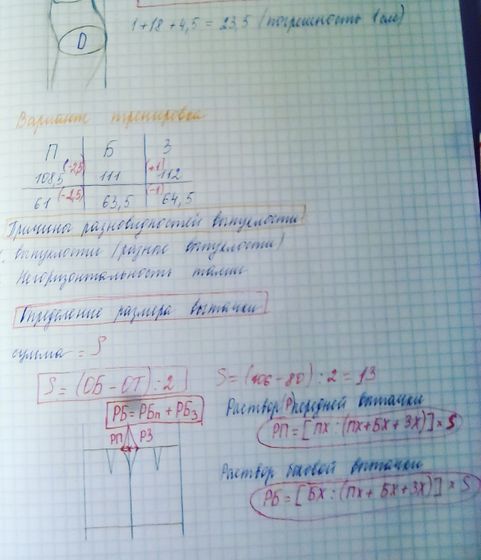 1+18+4,5 = 23,5 (погрешность 1 см)
D
Варианте тренировка
П Б З
108,5 (-2,5) 111 (+1) 112
61 (-2,5) 63,5 (-1) 64,5
Причины разновидностей выпуклости
выпуклости (разные выпуклости)
Негоризонтальность талии
Определение размера вытачки
сумма = S
S = (ОБ - ОТ) : 2
S = (106 - 80) : 2 = 13
РБ = РБп + РБз
Раствор (Р) передней вытачки
РП РЗ
РП = [ПХ : (ПХ + БХ + ЗХ)] × S
Раствор боковой вытачки
РБ = [БХ : (ПХ + БХ + ЗХ)] × S